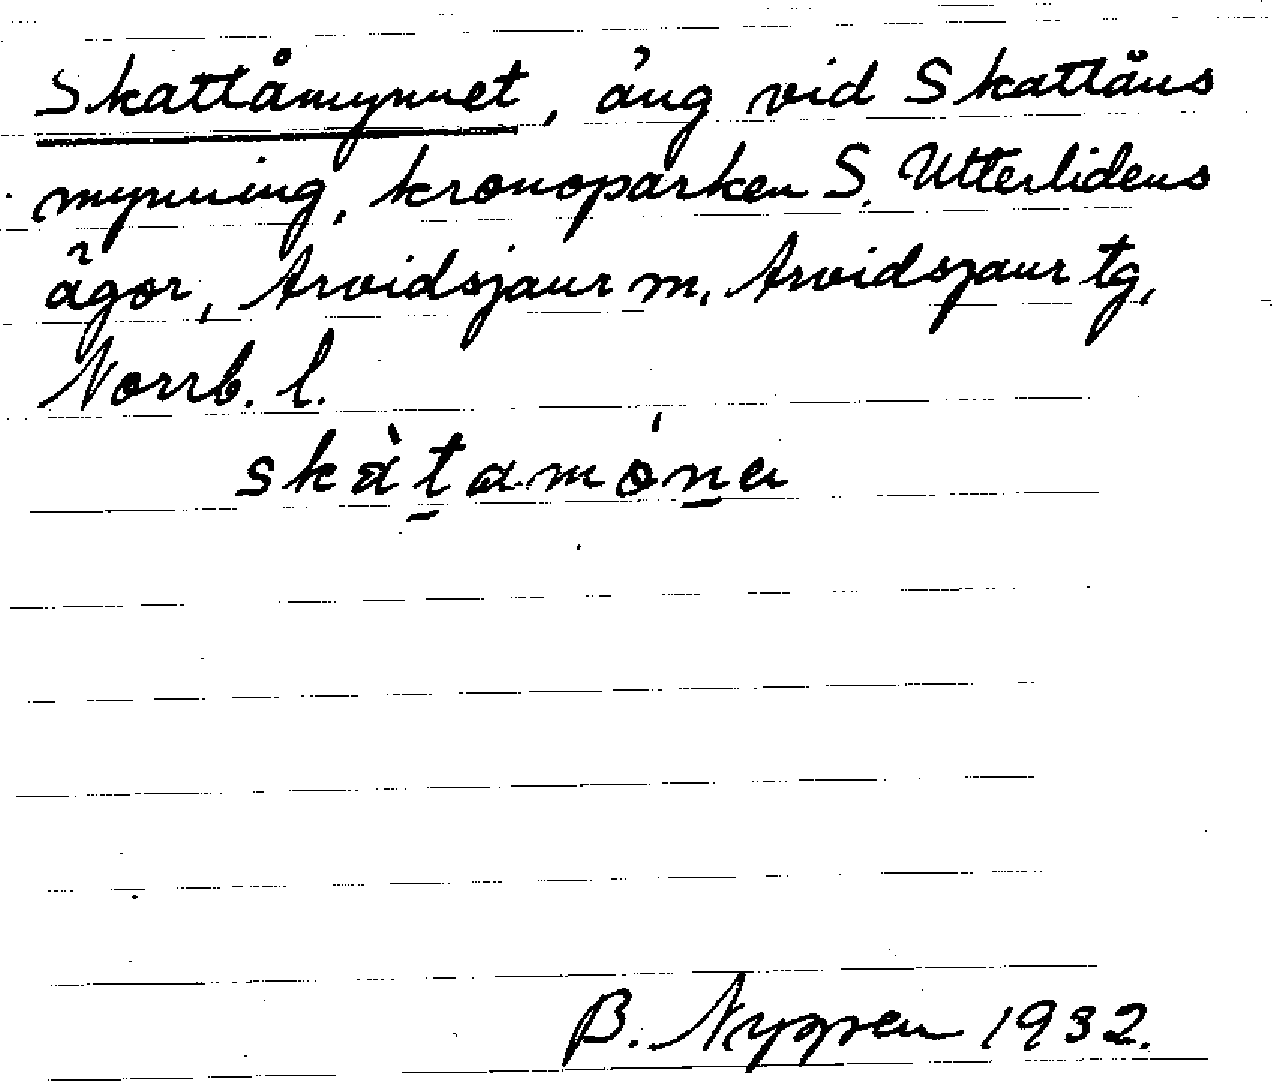 Skattåmynnet, äng vid Skattåns
mynning, kronoparken S. Utterlidens
ägor, Arvidsjaur m. Arvidsjaur tg,
Norrb. l.
skàtamóna
B. Nygren 1932.